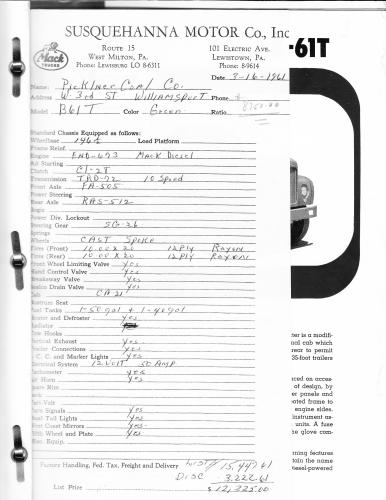 SUSQUEHANNA MOTOR Co., Inc
ROUTE 15
WEST MILTON, PA.
PHONE: LEWISBURG LO 8-6311
101 ELECTRIC AVE.
LEWISTOWN, PA.
PHONE: 8-9614
Mack
TRUCKS
-61T
Date 3-16-1961
Name: Picklner Coal Co.
Address W. 3rd ST Williamsport Phone
Model B61T Color Green Ratio
Standard Chassis Equipped as follows:
Wheelbase Load Platform
Frame Reinf.
Engine END-673 Mack Diesel
Air Starting
Clutch CI-2T
Transmission TRD-72 10 Speed
Front Axle FA-505
Power Steering
Rear Axle RAS-512
Bogie
Power Div. Lockout
Steering Gear SG-26
Springs
Wheels CAST Spoke
Tires (Front) 10.00 x 20 12 Ply Rayon
Tires (Rear) 10.00 x 20 12 Ply Rayon
Front Wheel Limiting Valve Yes
Hand Control Valve Yes
Breakaway Valve Yes
Remico Drain Valve Yes
Cab CA21
Bostrum Seat
Fuel Tanks 1-50 gal + 1-40 gal
Heater and Defroster Yes
Radiator
Tow Hooks
Vertical Exhaust Yes
Trailer Connections Yes
I. C. C. and Marker Lights Yes
Electrical System 12 Volt 50 AMP
Tachometer Yes
Air Horn Yes
Spare Rim
Volt
Turn Signals Yes
Stop Tail Lights Yes
West Coast Mirrors Yes
Fifth Wheel and Plate Yes
Misc. Equip.
Factory Handling, Fed. Tax, Freight and Delivery List 15,447.61
Disc 3,222.61
List Price $12,225.00
ter is a modifi-
nal cab which
rear to permit
35-foot trailers
ced on acces-
of design, by
er panels and
ated frame to
engine sides.
instrument as-
units. A fuse
he glove com-
rming features
join the name
diesel-powered